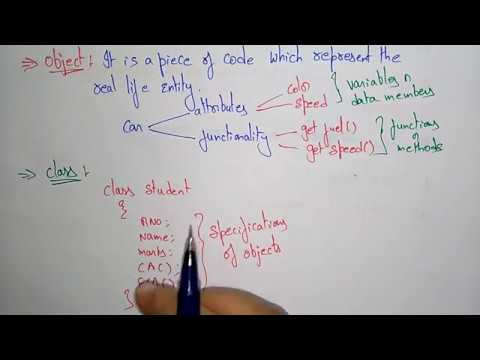 ⇒ Object : It is a piece of code which represent the
real life Entity.
Car
attributes
color
speed
variables n
data members
functionality
get fuel()
get speed()
functions
or
methods
⇒ class :
class student
{
RNO:
Name:
marks:
CAC) :
}
specifications
of objects